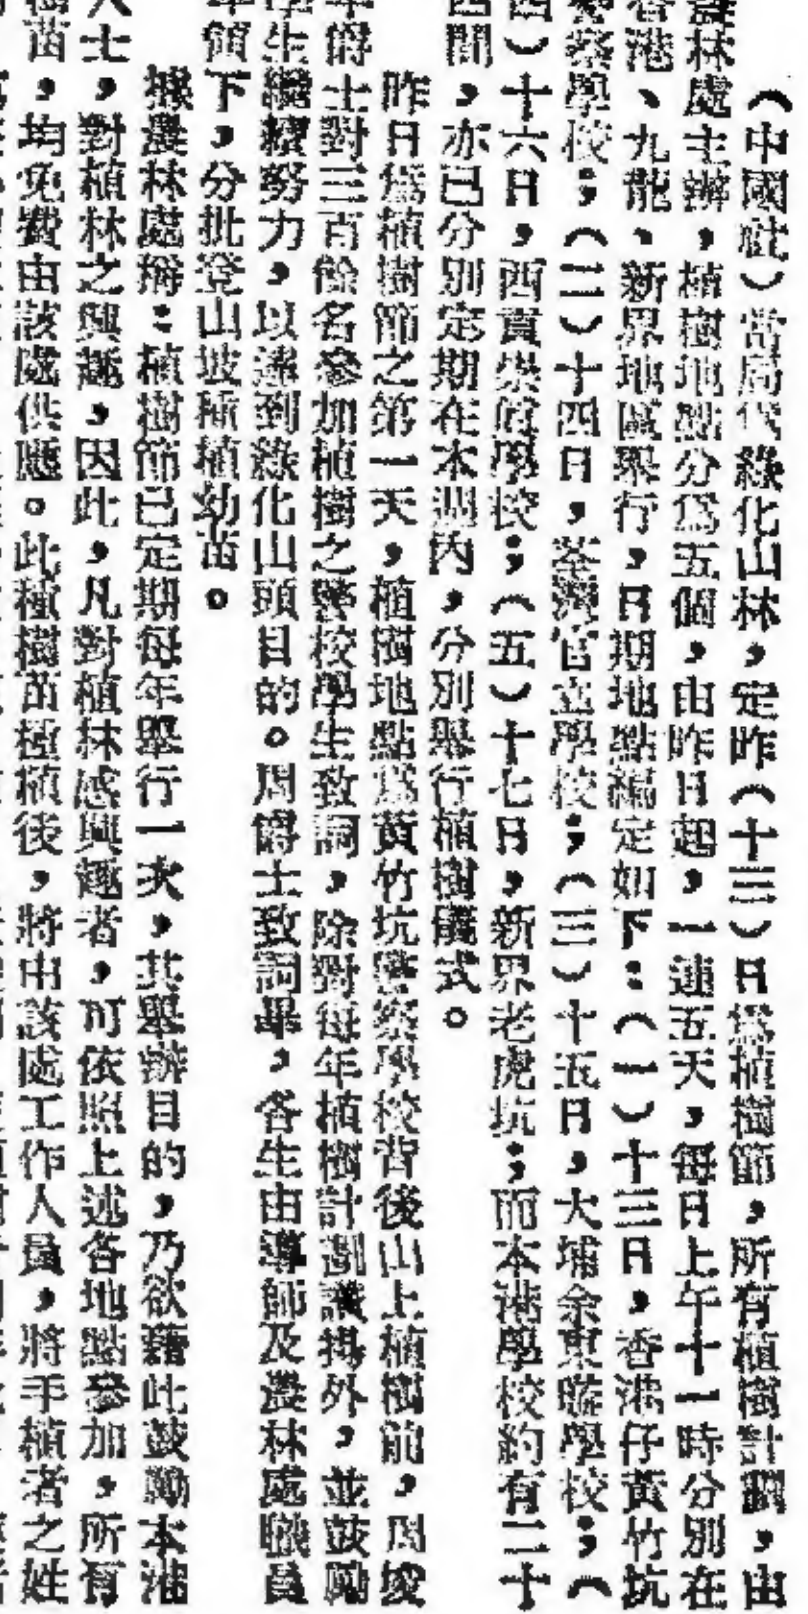 （中國社）當局代綠化山林，定昨（十三）日爲植樹節，所有植樹計劃，由
農林處主辦，植樹地點分爲五個，由昨日起，一連五天，每日上午十一時分別在
香港、九龍、新界地區舉行，日期地點編定如下：（一）十三日，香港仔黃竹坑
警察學校；（二）十四日，荃灣官立學校；（三）十五日，大埔余東璇學校；（
四）十六日，西貢崇眞學校；（五）十七日，新界老虎坑；而本港學校約有二十
四間，亦已分別定期在本週內，分別舉行植樹儀式。
昨日爲植樹節之第一天，植樹地點爲黃竹坑警察學校背後山上植樹前，周埈
年爵士對三百餘名參加植樹之警校學生致詞，除對每年植樹計劃讚揚外，並鼓勵
學生繼續努力，以達到綠化山頭目的。周爵士致詞畢，各生由導師及農林處職員
率領下，分批登山坡種植幼苗。
據農林處稱：植樹節已定期每年舉行一次，其舉辦目的，乃欲藉此鼓勵本港
人士，對植林之興趣，因此，凡對植林感興趣者，可依照上述各地點參加，所有
樹苗，均免費由該處供應。此種樹苗種植後，將由該處工作人員，將手植者之姓